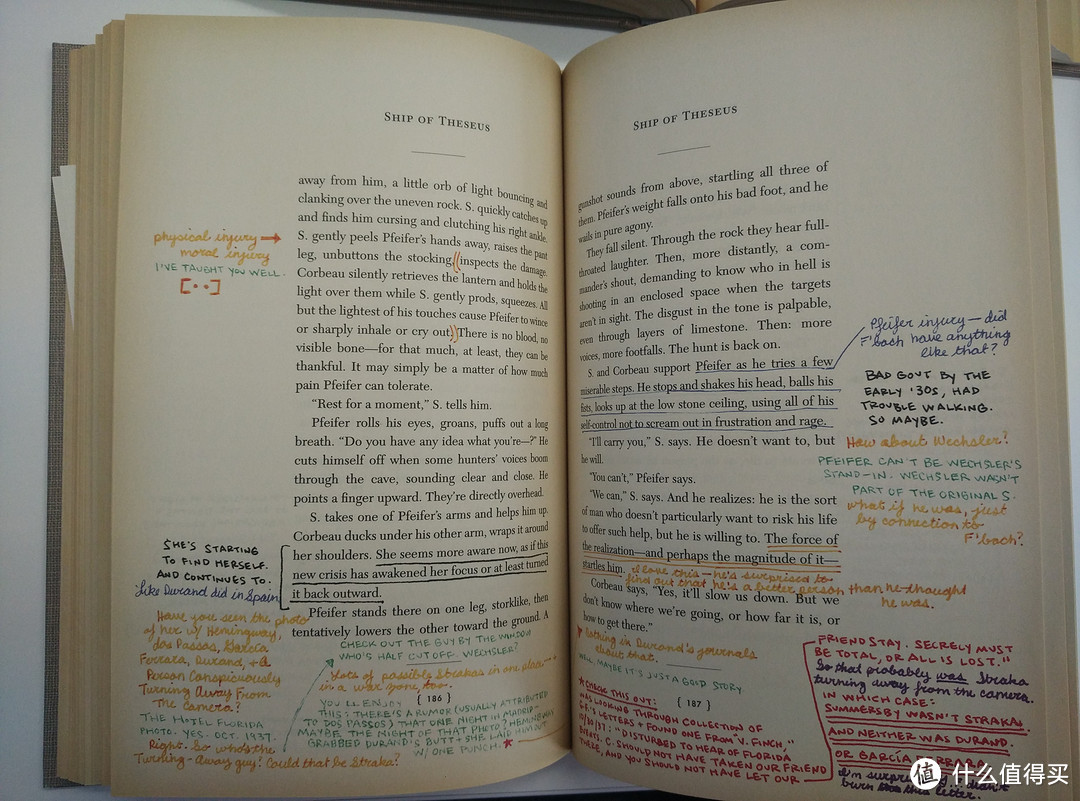 SHIP OF THESEUS
away from him, a little orb of light bouncing and
clanking over the uneven rock. S. quickly catches up
and finds him cursing and clutching his right ankle.
S. gently peels Pfeifer's hands away, raises the pant
leg, unbuttons the stocking, inspects the damage.
Corbeau silently retrieves the lantern and holds the
light over them while S. gently prods, squeezes. All
but the lightest of his touches cause Pfeifer to wince
or sharply inhale or cry out. There is no blood, no
visible bone—for that much, at least, they can be
thankful. It may simply be a matter of how much
pain Pfeifer can tolerate.
"Rest for a moment," S. tells him.
Pfeifer rolls his eyes, groans, puffs out a long
breath. "Do you have any idea what you're—?" He
cuts himself off when some hunters' voices boom
through the cave, sounding clear and close. He
points a finger upward. They're directly overhead.
S. takes one of Pfeifer's arms and helps him up.
Corbeau ducks under his other arm, wraps it around
her shoulders. She seems more aware now, as if this
new crisis has awakened her focus or at least turned
it back outward.
Pfeifer stands there on one leg, storklike, then
tentatively lowers the other toward the ground. A
[ 186 ]
physical injury →
moral injury
I'VE TAUGHT YOU WELL.
[••]
SHE'S STARTING
TO FIND HERSELF.
AND CONTINUES TO.
Like Durand did in Spain
Have you seen the photo
of her w/ Hemingway,
dos Passos, García
Ferrara, Durand, + a
Person Conspicuously
Turning Away From
The Camera?
THE HOTEL FLORIDA
PHOTO. YES. OCT. 1937.
Right. So who's the
Turning-away guy? Could that be Straka?
CHECK OUT THE GUY BY THE WINDOW
WHO'S HALF CUT OFF. WECHSLER?
Lots of possible Strakas in one place—
in a war zone, too.
YOU'LL ENJOY
THIS: THERE'S A RUMOR (USUALLY ATTRIBUTED
TO DOS PASSOS) THAT ONE NIGHT IN MADRID—
MAYBE THE NIGHT OF THAT PHOTO? HEMINGWAY
GRABBED DURAND'S BUTT + SHE LAID HIM OUT
W/ ONE PUNCH.
SHIP OF THESEUS
gunshot sounds from above, startling all three of
them. Pfeifer's weight falls onto his bad foot, and he
wails in pure agony.
They fall silent. Through the rock they hear full-
throated laughter. Then, more distantly, a com-
mander's shout, demanding to know who in hell is
shooting in an enclosed space when the targets
aren't in sight. The disgust in the tone is palpable,
even through layers of limestone. Then: more
voices, more footfalls. The hunt is back on.
S. and Corbeau support Pfeifer as he tries a few
miserable steps. He stops and shakes his head, balls his
fists, looks up at the low stone ceiling, using all of his
self-control not to scream out in frustration and rage.
"I'll carry you," S. says. He doesn't want to, but
he will.
"You can't," Pfeifer says.
"We can," S. says. And he realizes: he is the sort
of man who doesn't particularly want to risk his life
to offer such help, but he is willing to. The force of
the realization—and perhaps the magnitude of it—
startles him.
I love this—he's surprised to
find out that he's a better person than he thought
he was.
Corbeau says, "Yes, it'll slow us down. But we
don't know where we're going, or how far it is, or
how to get there."
[ 187 ]
Pfeifer injury—did
F'bach have anything
like that?
BAD GOUT BY THE
EARLY '30S, HAD
TROUBLE WALKING.
SO MAYBE.
How about Wechsler?
PFEIFER CAN'T BE WECHSLER'S
STAND-IN. WECHSLER WASN'T
PART OF THE ORIGINAL S.
what if he was, just
by connection to
F'bach?
Nothing in Durand's journals
about that.
WELL, MAYBE IT'S JUST A GOOD STORY
*CHECK THIS OUT:
WAS LOOKING THROUGH COLLECTION OF
LETTERS + FOUND ONE FROM "V. FINCH,"
"DISTURBED TO HEAR OF FLORIDA
C. SHOULD NOT HAVE TAKEN OUR FRIEND
THERE, AND YOU SHOULD NOT HAVE LET OUR
FRIEND STAY. SECRELY MUST
BE TOTAL, OR ALL IS LOST."
So that probably was Straka
turning away from the camera.
IN WHICH CASE:
SUMMERSBY WASN'T STRAKA.
AND NEITHER WAS DURAND.
OR GARCÍA FERRARA
I'm surprised didn't
burn this letter.
值 什么值得买